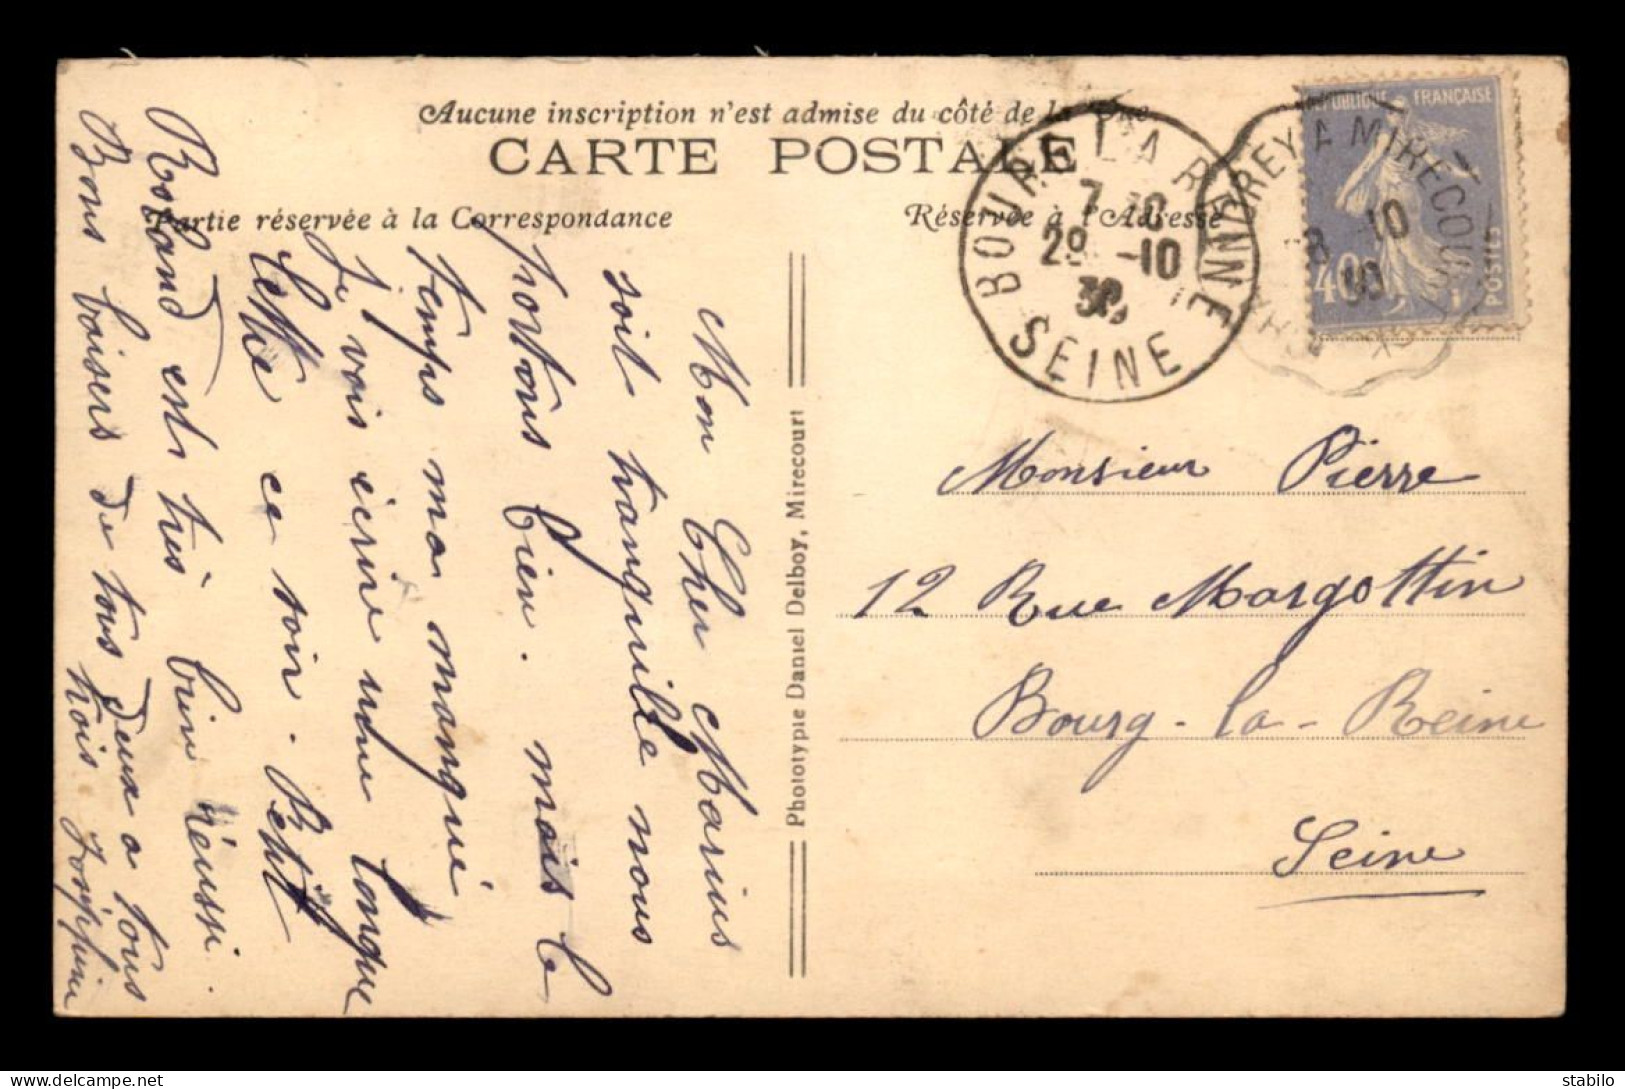 Aucune inscription n'est admise du côté de la Vue
CARTE POSTALE
Partie réservée à la Correspondance
Réservée à l'Adresse
Mon Cher Marius
soit tranquille nous
portons bien. mais le
temps m'a manqué
Je vais écrire une longue
lettre ce soir. Petit
Roland est très bien réussi.
Bons baisers de tous deux a tous
trois Joséphine
Phototypie Daniel Delboy, Mirecourt
BOURG LA REINE
7 30
28 -10
30
SEINE
REY A MIRECOURT
10
RÉPUBLIQUE FRANÇAISE
40c
POSTES
Monsieur Pierre
12 Rue Margottin
Bourg-la-Reine
Seine
stabilo